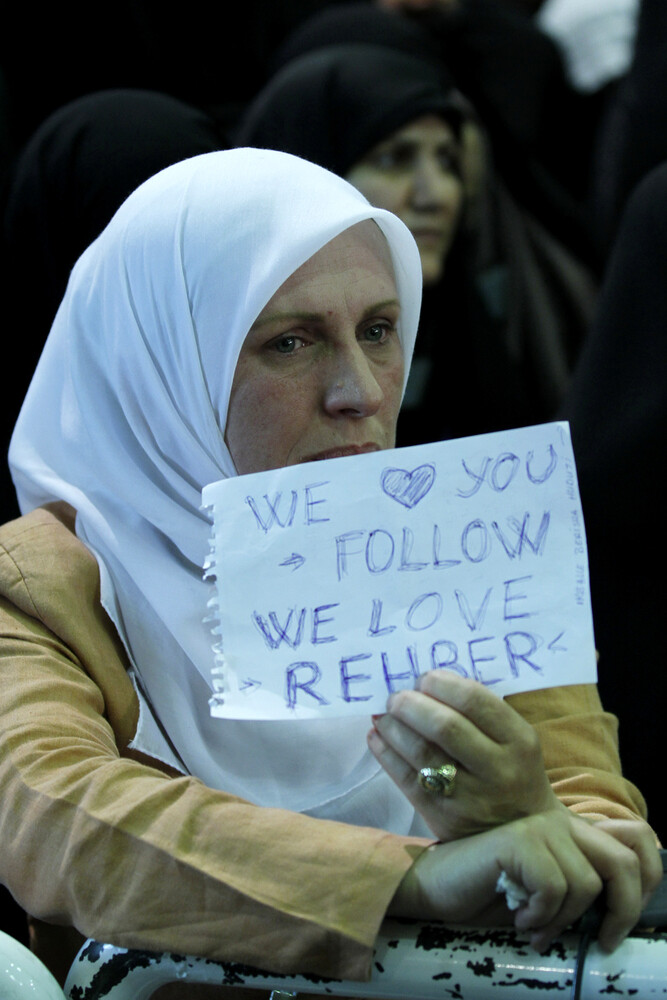 WE ♥ YOU
→ FOLLOW
WE LOVE
→ REHBER ←